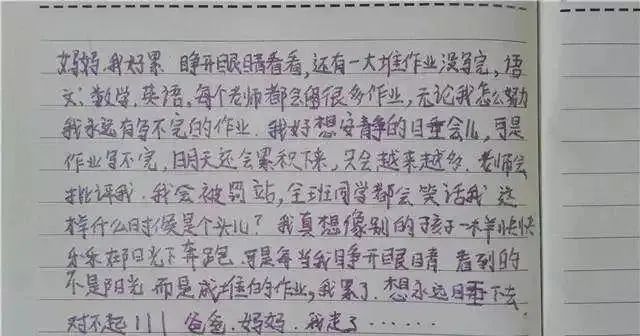 妈妈.我好累 睁开眼睛看看,还有一大堆作业没写完,语
文;数学.英语,每个老师都会留很多作业,无论我怎么努力
我永远有写不完的作业.我好想安静的睡会儿,可是
作业写不完,明天还会累积下来,只会越来越多.老师会
批评我.我会被罚站,全班同学都会笑话我 这
样什么时候是个头儿?我真想像别的孩子一样快快
乐乐在阳光下奔跑.可是每当我睁开眼睛 看到的
不是阳光 而是成堆的作业,我累了.想永远睡下去
对不起!!! 爸爸.妈妈.我走了……